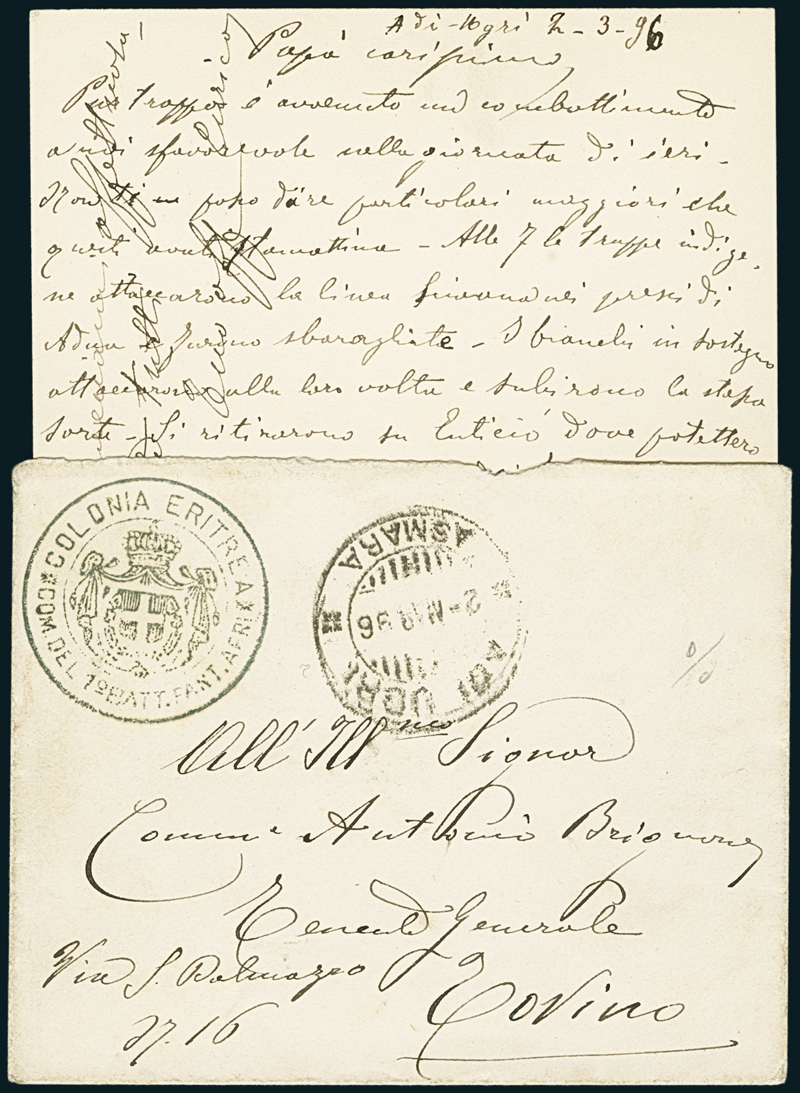 Adi-Ugri 2-3-96
Papà carissimo,
Purtroppo è avvenuto un combattimento
a noi sfavorevole nella giornata di ieri -
Non ti posso dare particolari maggiori che
questi avuti stamattina - Alle 7 le truppe indige
ne attaccarono la linea nei pressi di
Adua e furono sbaragliate - I bianchi in sostegno
attaccarono alla loro volta e subirono la stessa
sorte - Si ritirarono su Enticiò dove potettero
COLONIA ERITREA
COM. DEL 1º BATT. FANT. AFRI
ADI UGRI
ASMARA
2 - MAR 96
All' Ill.mo Signor
Comm.e Antonio Brignone
Tenente Generale
Via S. Dalmazzo
N. 16
Torino